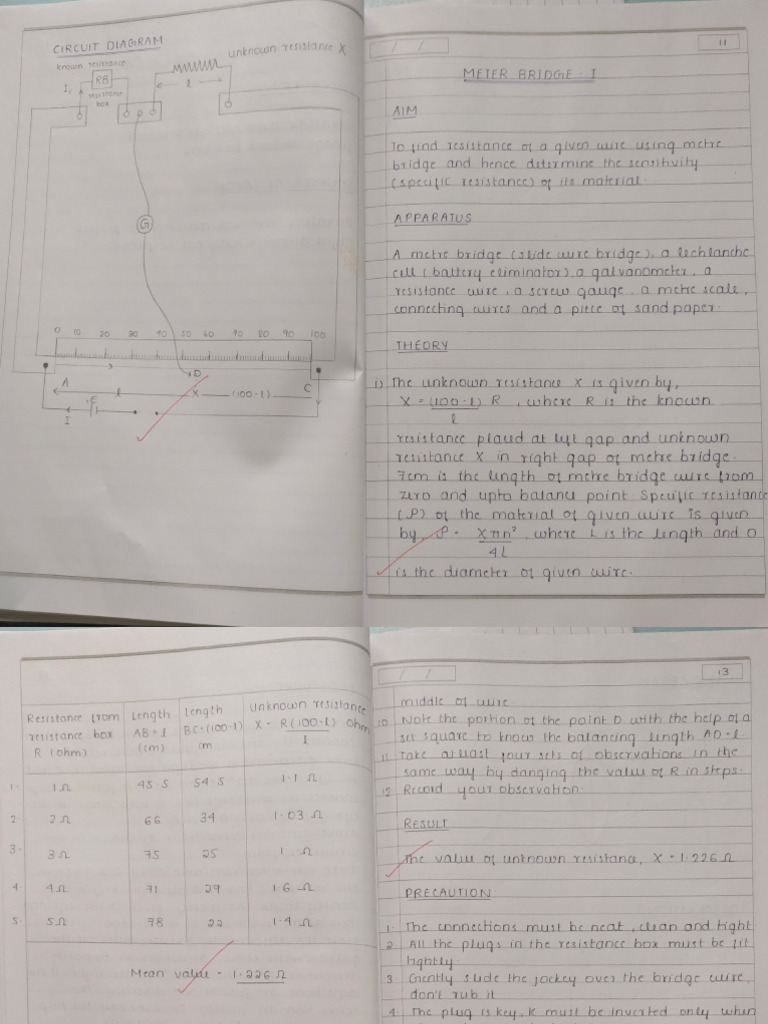 CIRCUIT DIAGRAM
unknown resistance X
known resistance
RB
I₁
resistance
box
l
G
0 10 20 30 40 50 60 70 80 90 100
D
A l X (100-l) C
E
I
11
METER BRIDGE - I
AIM
To find resistance of a given wire using metre
bridge and hence determine the sensitivity
(specific resistance) of its material.
APPARATUS
A metre bridge (slide wire bridge), a lechlanche
cell (battery eliminator), a galvanometer, a
resistance wire, a screw gauge, a metre scale,
connecting wires and a piece of sand paper.
THEORY
i) The unknown resistance X is given by,
X = (100-l) R , where R is the known
l
resistance placed at left gap and unknown
resistance X in right gap of metre bridge.
7cm is the length of metre bridge wire from
zero and upto balance point. Specific resistance
(ρ) of the material of given wire is given
by, ρ = XπD² , where L is the length and D
4L
is the diameter of given wire.
Resistance from
resistance box
R (ohm)
Length
AB = l
(cm)
Length
BC = (100-l)
cm
Unknown resistance
X = R(100-l) ohm
l
1. 1Ω 45.5 54.5 1.1 Ω
2. 2Ω 66 34 1.03 Ω
3. 3Ω 75 25 1 Ω
4. 4Ω 71 29 1.6 Ω
5. 5Ω 78 22 1.4 Ω
Mean value = 1.226 Ω
13
middle of wire
10 Note the portion of the point D with the help of a
set square to know the balancing length AD = l.
11 Take atleast four sets of observations in the
same way by danging the value of R in steps.
12 Record your observation.
RESULT
The value of unknown resistance, X = 1.226 Ω
PRECAUTION
1. The connections must be neat, clean and tight
2 All the plugs in the resistance box must be fit
tightly.
3 Gently slide the jockey over the bridge wire,
don't rub it
4 The plug is key, K must be inverted only when